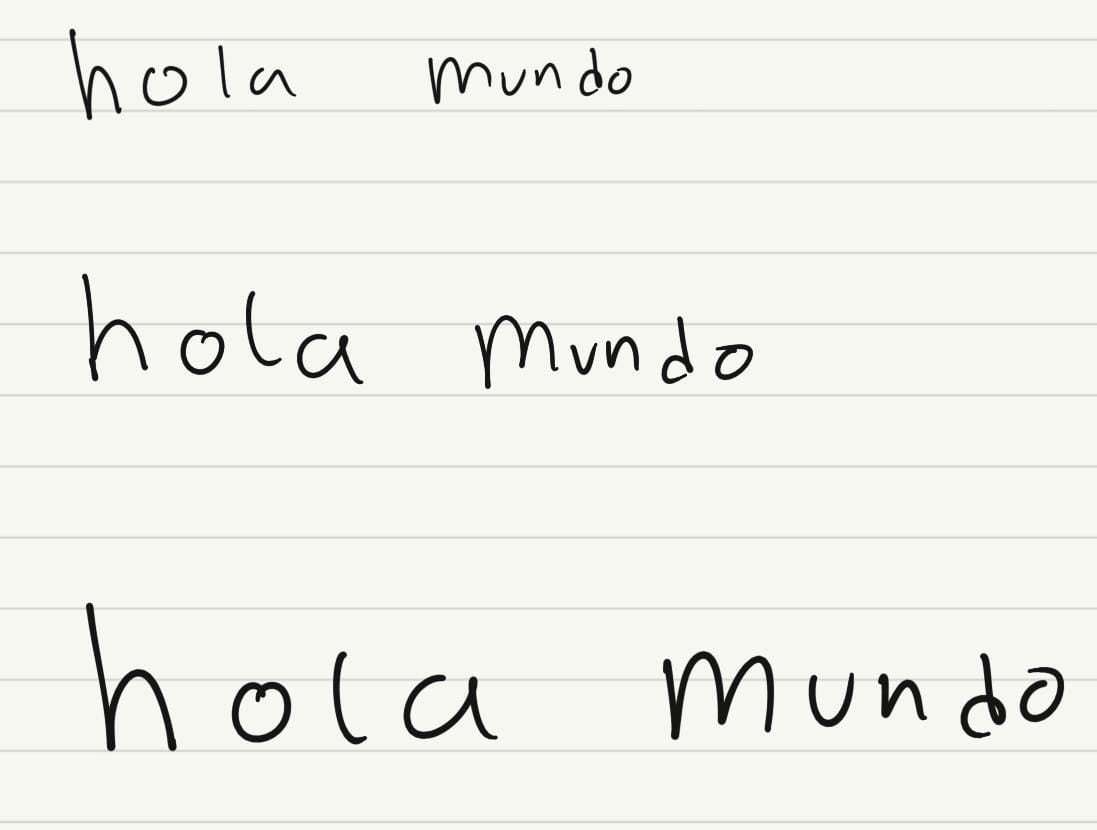 hola mundo
hola mundo
hola mundo